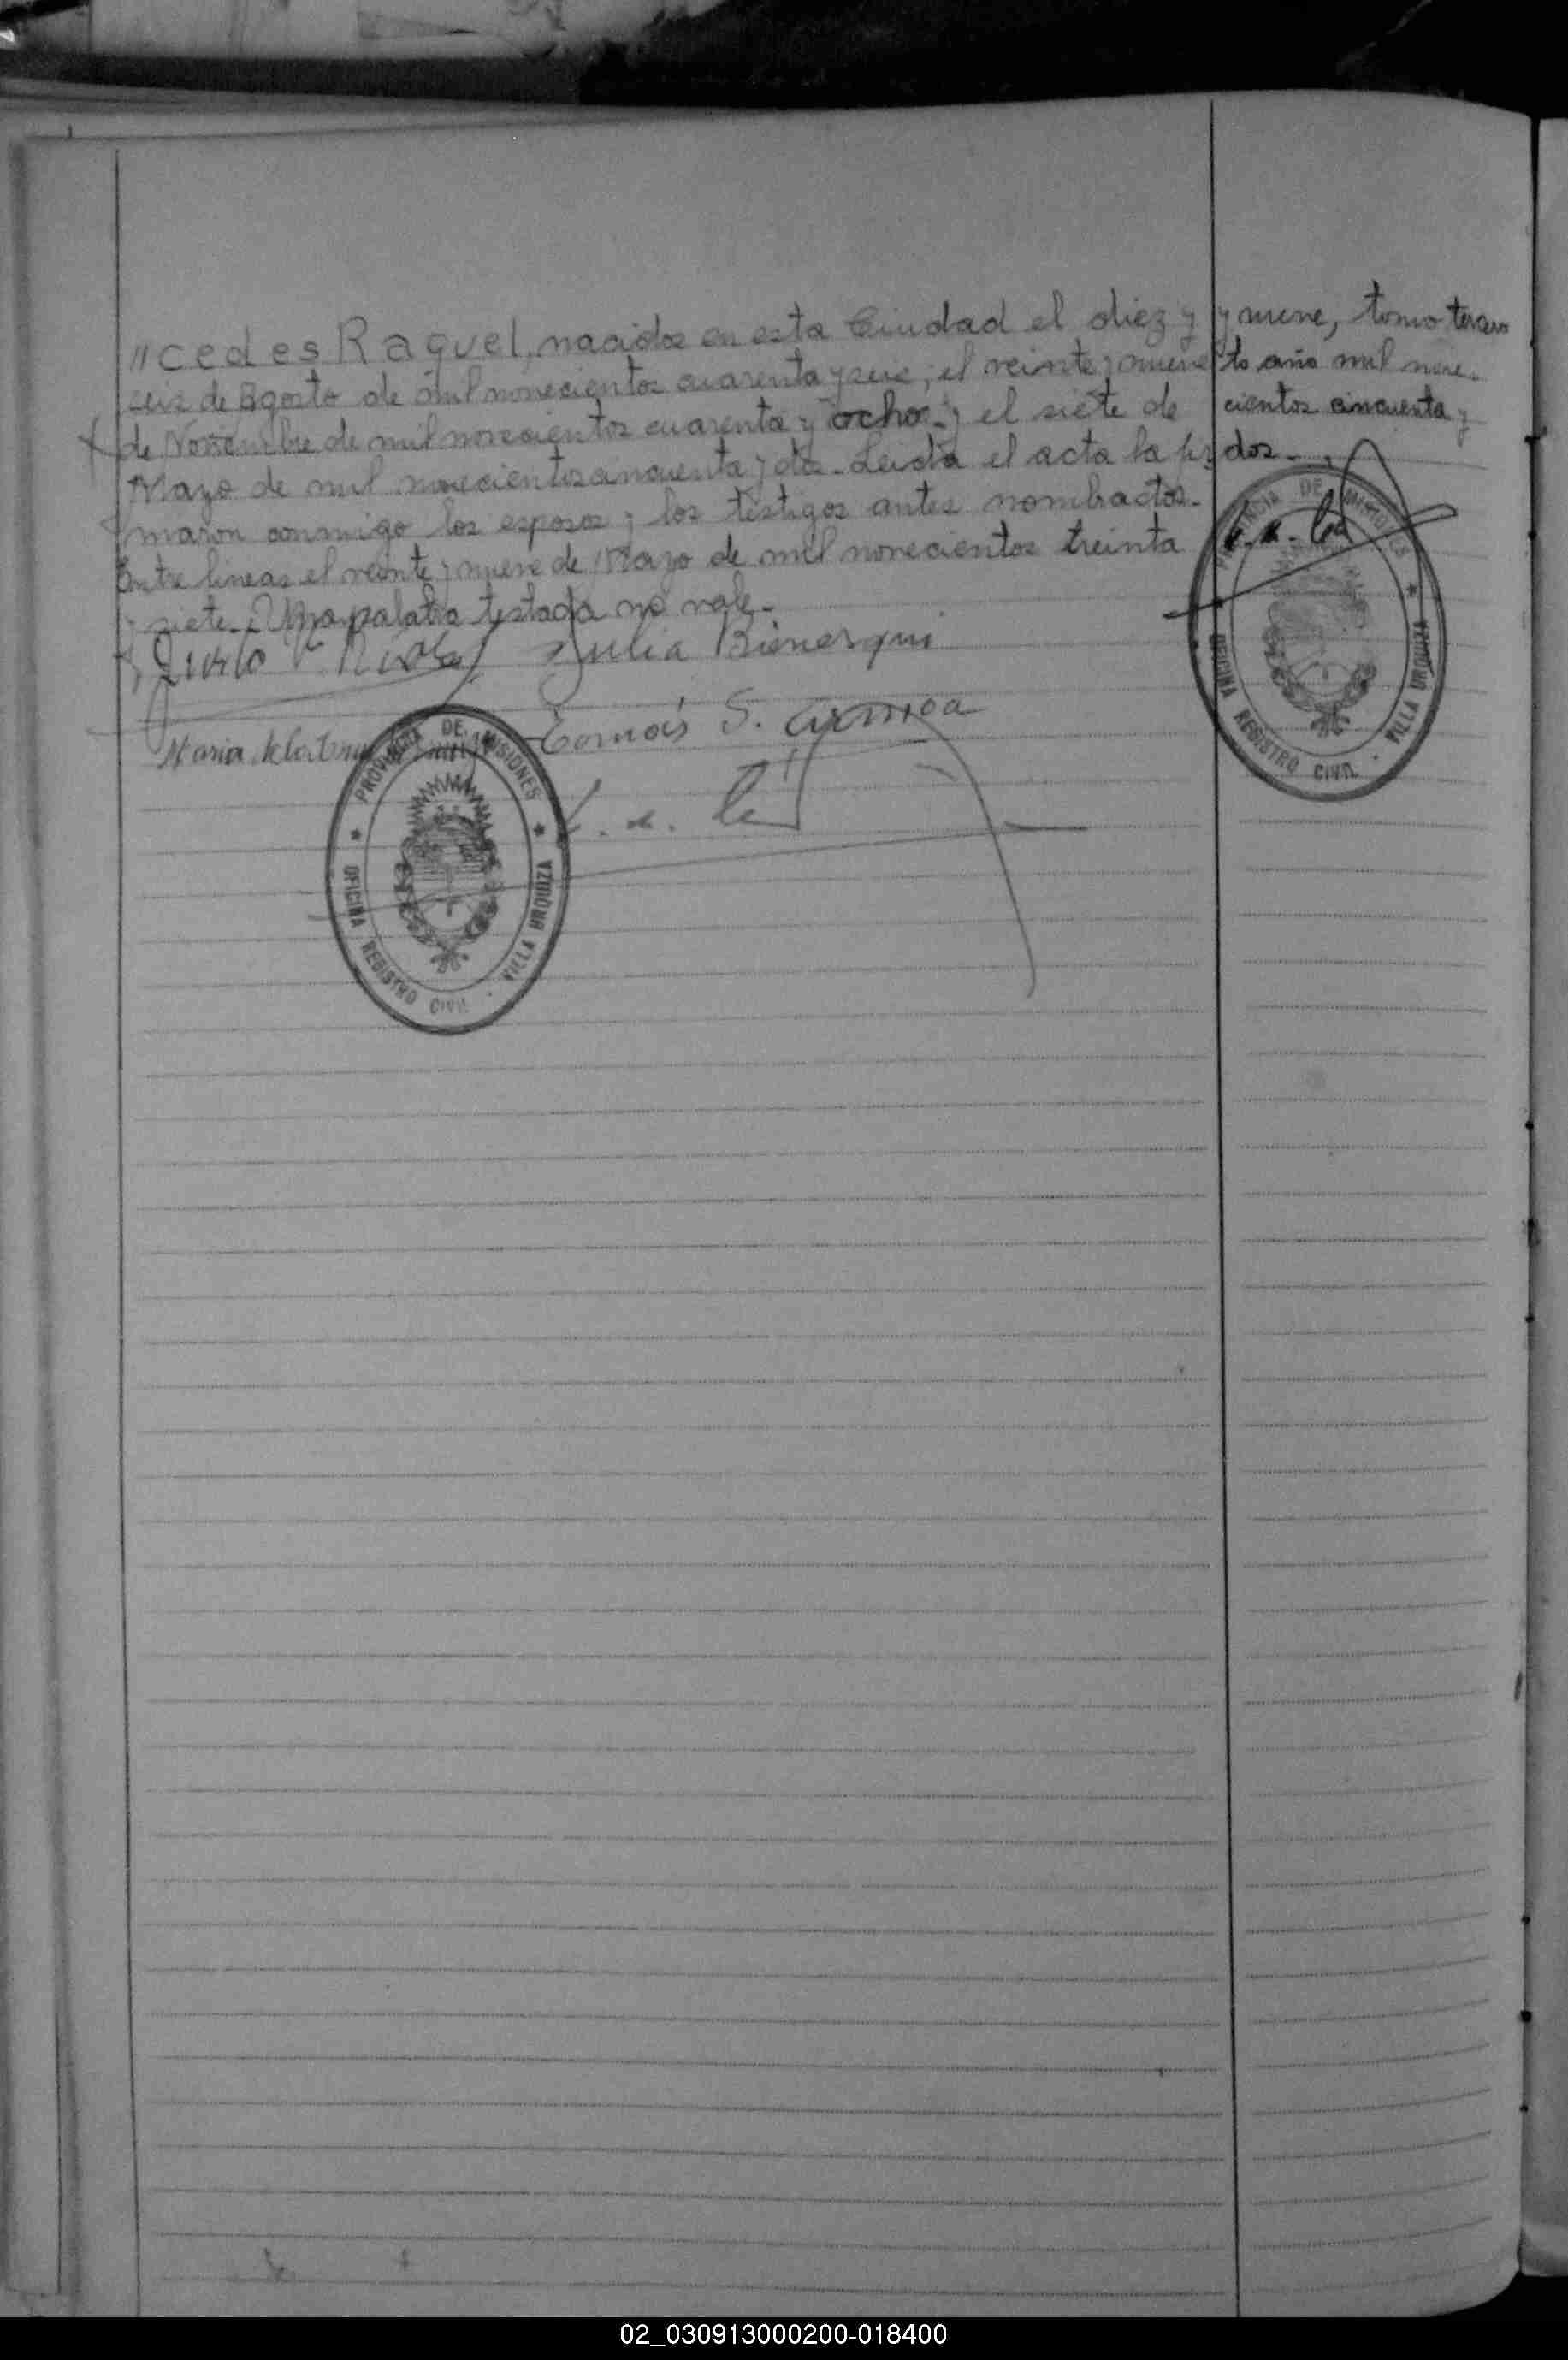 "cedes Raquel, nacidos en esta Ciudad el diez y
seis de Agosto de mil novecientos cuarenta y seis; el veinte y nueve
de Noviembre de mil novecientos cuarenta y ocho y el siete de
Mayo de mil novecientos cincuenta y dos. Leida el acta la fir
maron conmigo los esposos y los testigos antes nombrados.
Entre lineas el veinte y nueve de Mayo de mil novecientos treinta
y siete. Una palabra testada no vale.
Julia
Maria
Tomás S.
PROVINCIA DE MISIONES
OFICINA REGISTRO CIVIL · VILLA URQUIZA
y nueve, tomo
to año mil nove-
cientos cincuenta y
dos.
PROVINCIA DE MISIONES
OFICINA REGISTRO CIVIL · VILLA URQUIZA
02_030913000200-018400